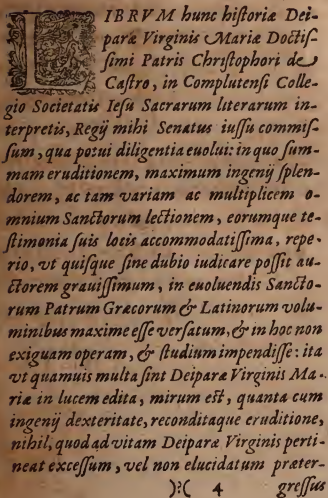 LIBRVM hunc historiæ Dei-
paræ Virginis Mariæ Doctis-
simi Patris Christophori de
Castro, in Complutensi Colle-
gio Societatis Iesu Sacrarum literarum in-
terpretis, Regij mihi Senatus iussu commis-
sum, qua potui diligentia euolui: in quo sum-
mam eruditionem, maximum ingenij splen-
dorem, ac tam variam ac multiplicem o-
mnium Sanctorum lectionem, eorumque te-
stimonia suis locis accommodatissima, repe-
rio, vt quisque sine dubio iudicare possit au-
ctorem grauissimum, in euoluendis Sancto-
rum Patrum Græcorum & Latinorum volu-
minibus maxime esse versatum, & in hoc non
exiguam operam, & studium impendisse: ita
vt quamuis multa sint Deiparæ Virginis Ma-
riæ in lucem edita, mirum est, quanta cum
ingenij dexteritate, reconditaque eruditione,
nihil, quod ad vitam Deiparæ Virginis perti-
neat excessum, vel non elucidatum præter-
):( 4 gressus